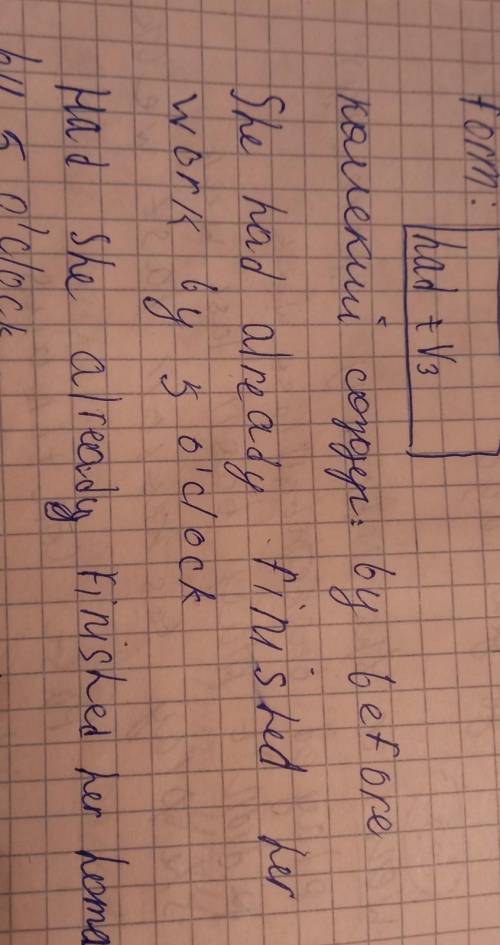 Form:
had + V3
сөздер: by before
She had already finished her
work by 5 o'clock
Had She already finished her
by 5 o'clock